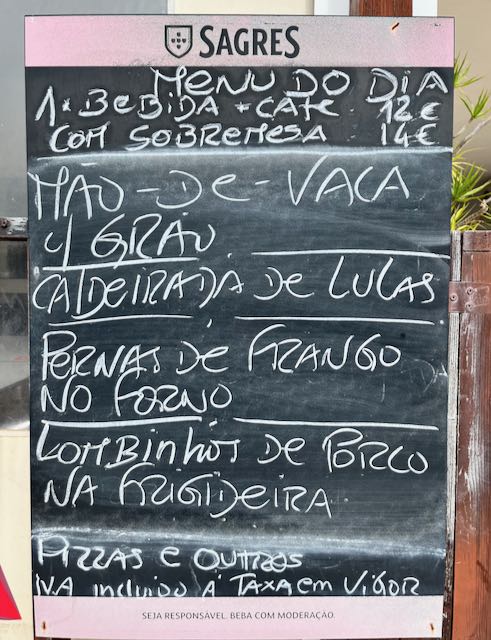 SAGRES
MENU DO DIA
1x BEBIDA + CAFE 12€
COM SOBREMESA 14€
MAO-DE-VACA
C/ GRÃO
CALDEIRADA DE LULAS
PERNAS DE FRANGO
NO FORNO
LOMBINHOS DE PORCO
NA FRIGIDEIRA
PIZZAS E OUTROS
IVA INCLUIDO À TAXA EM VIGOR
SEJA RESPONSÁVEL. BEBA COM MODERAÇÃO.